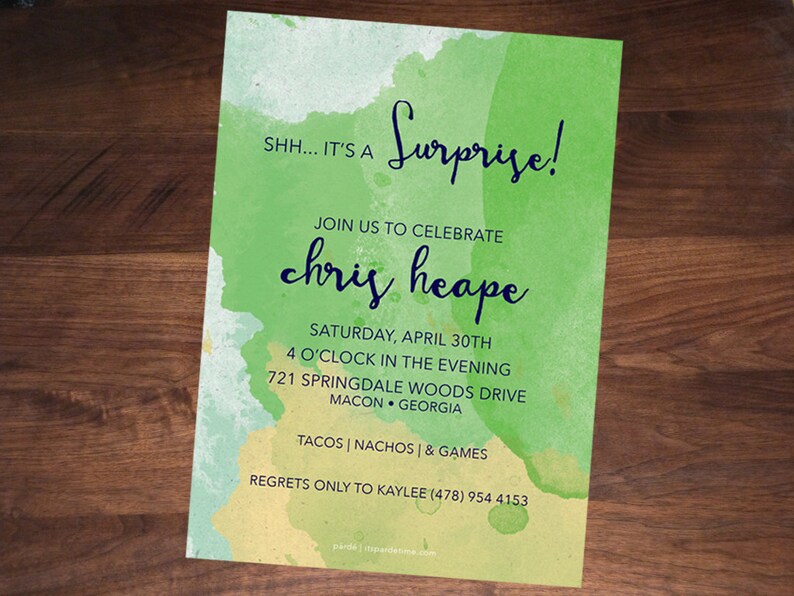 SHH... IT'S A Surprise!
JOIN US TO CELEBRATE
chris heape
SATURDAY, APRIL 30TH
4 O'CLOCK IN THE EVENING
721 SPRINGDALE WOODS DRIVE
MACON • GEORGIA
TACOS | NACHOS | & GAMES
REGRETS ONLY TO KAYLEE (478) 954 4153
pârdé | itspardetime.com